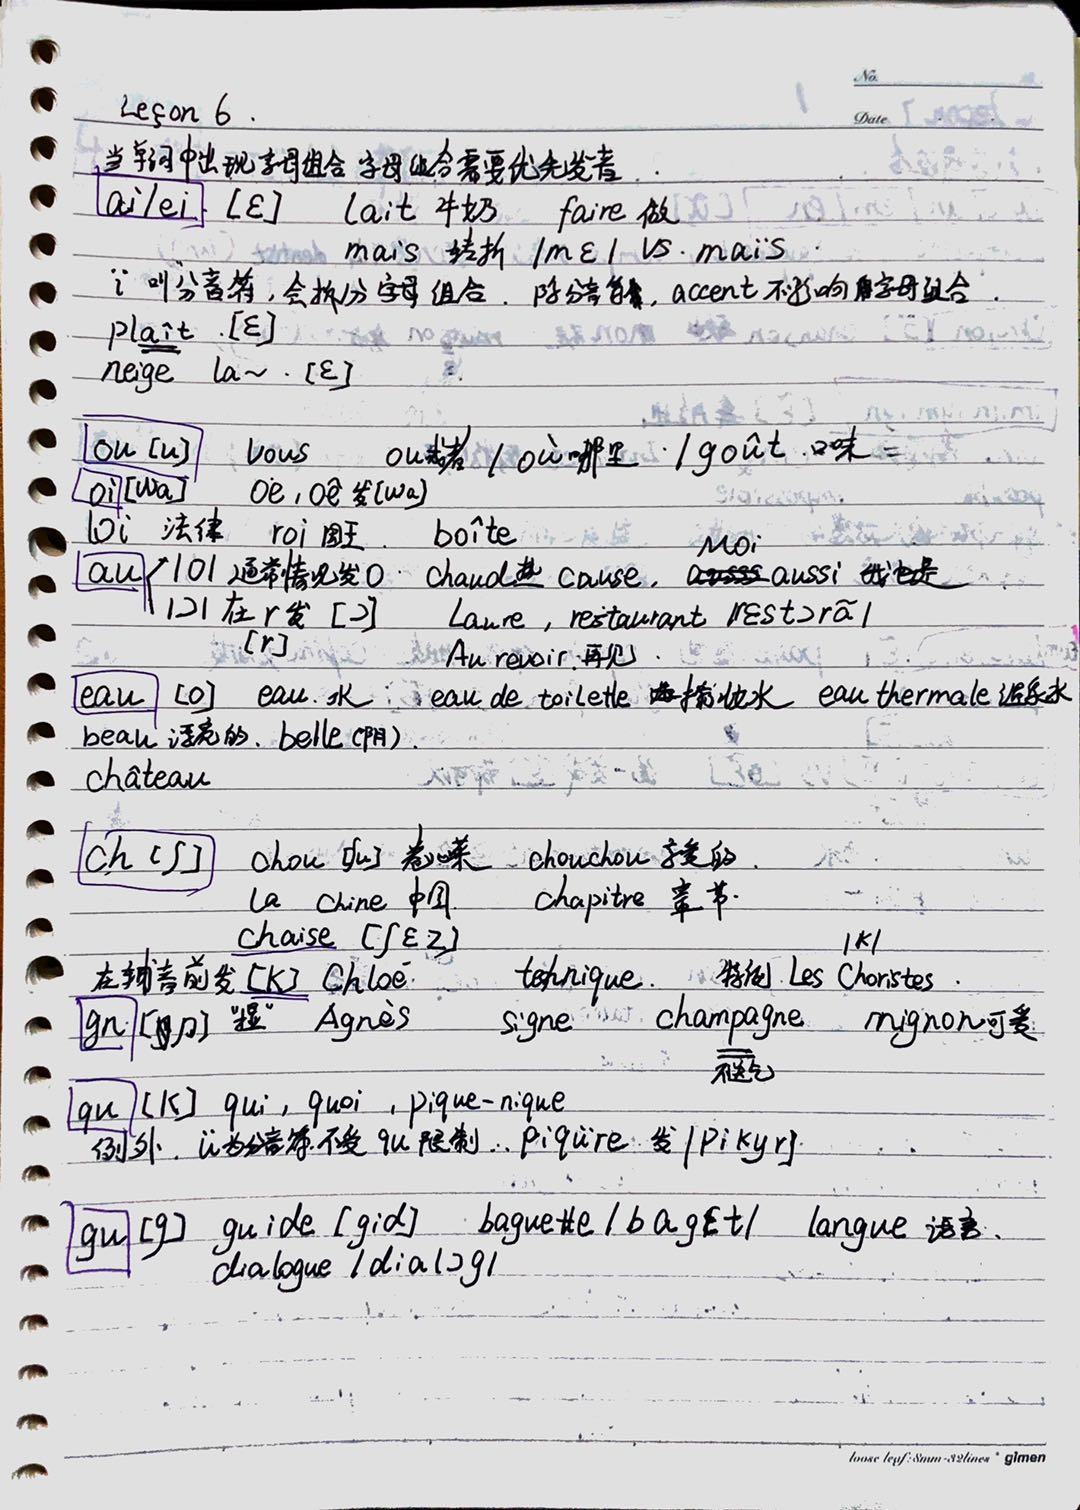 No.
Date
Leçon 6.
当单词中出现字母组合 字母组合需要优先发音
ai/ei [ɛ] lait 牛奶 faire 做
mais 转折 /mɛ/ VS. maïs
ï 叫分音符, 会拆分字母组合. 除分音符, accent 不影响字母组合.
plaît [ɛ]
neige la~. [ɛ]
ou [u] vous ou 或者 / où 哪里 / goût 口味
oi [wa] oe, oê 发 [wa]
loi 法律 roi 国王 boîte
Moi
au /o/ 通常情况发 o. chaud 热 cause, aussi 我也是
/ɔ/ 在 r 发 [ɔ] Laure, restaurant /rɛstɔrã/
[r] Au revoir. 再见.
eau [o] eau 水 eau de toilette 淡妆水 eau thermale 温泉水
beau 漂亮的. belle (阴).
château
ch [ʃ] chou [ʃu] 卷心菜 chouchou 宠爱的.
la chine 中国 chapitre 章节.
chaise [ʃɛz] /k/
在辅音前发 [k] Chloé tehnique. 特例 Les Choristes.
gn [ɲ] "捏" Agnès signe champagne mignon 可爱
不送气
qu [k] qui, quoi, pique-nique
例外. ü为分音符. 不受 qu 限制.. piqüre 发 /pikyr].
gu [g] guide [gid] baguette /bagɛt/ langue 语言.
dialogue /dialɔg/
loose leaf: 8mm-32lines * gimen